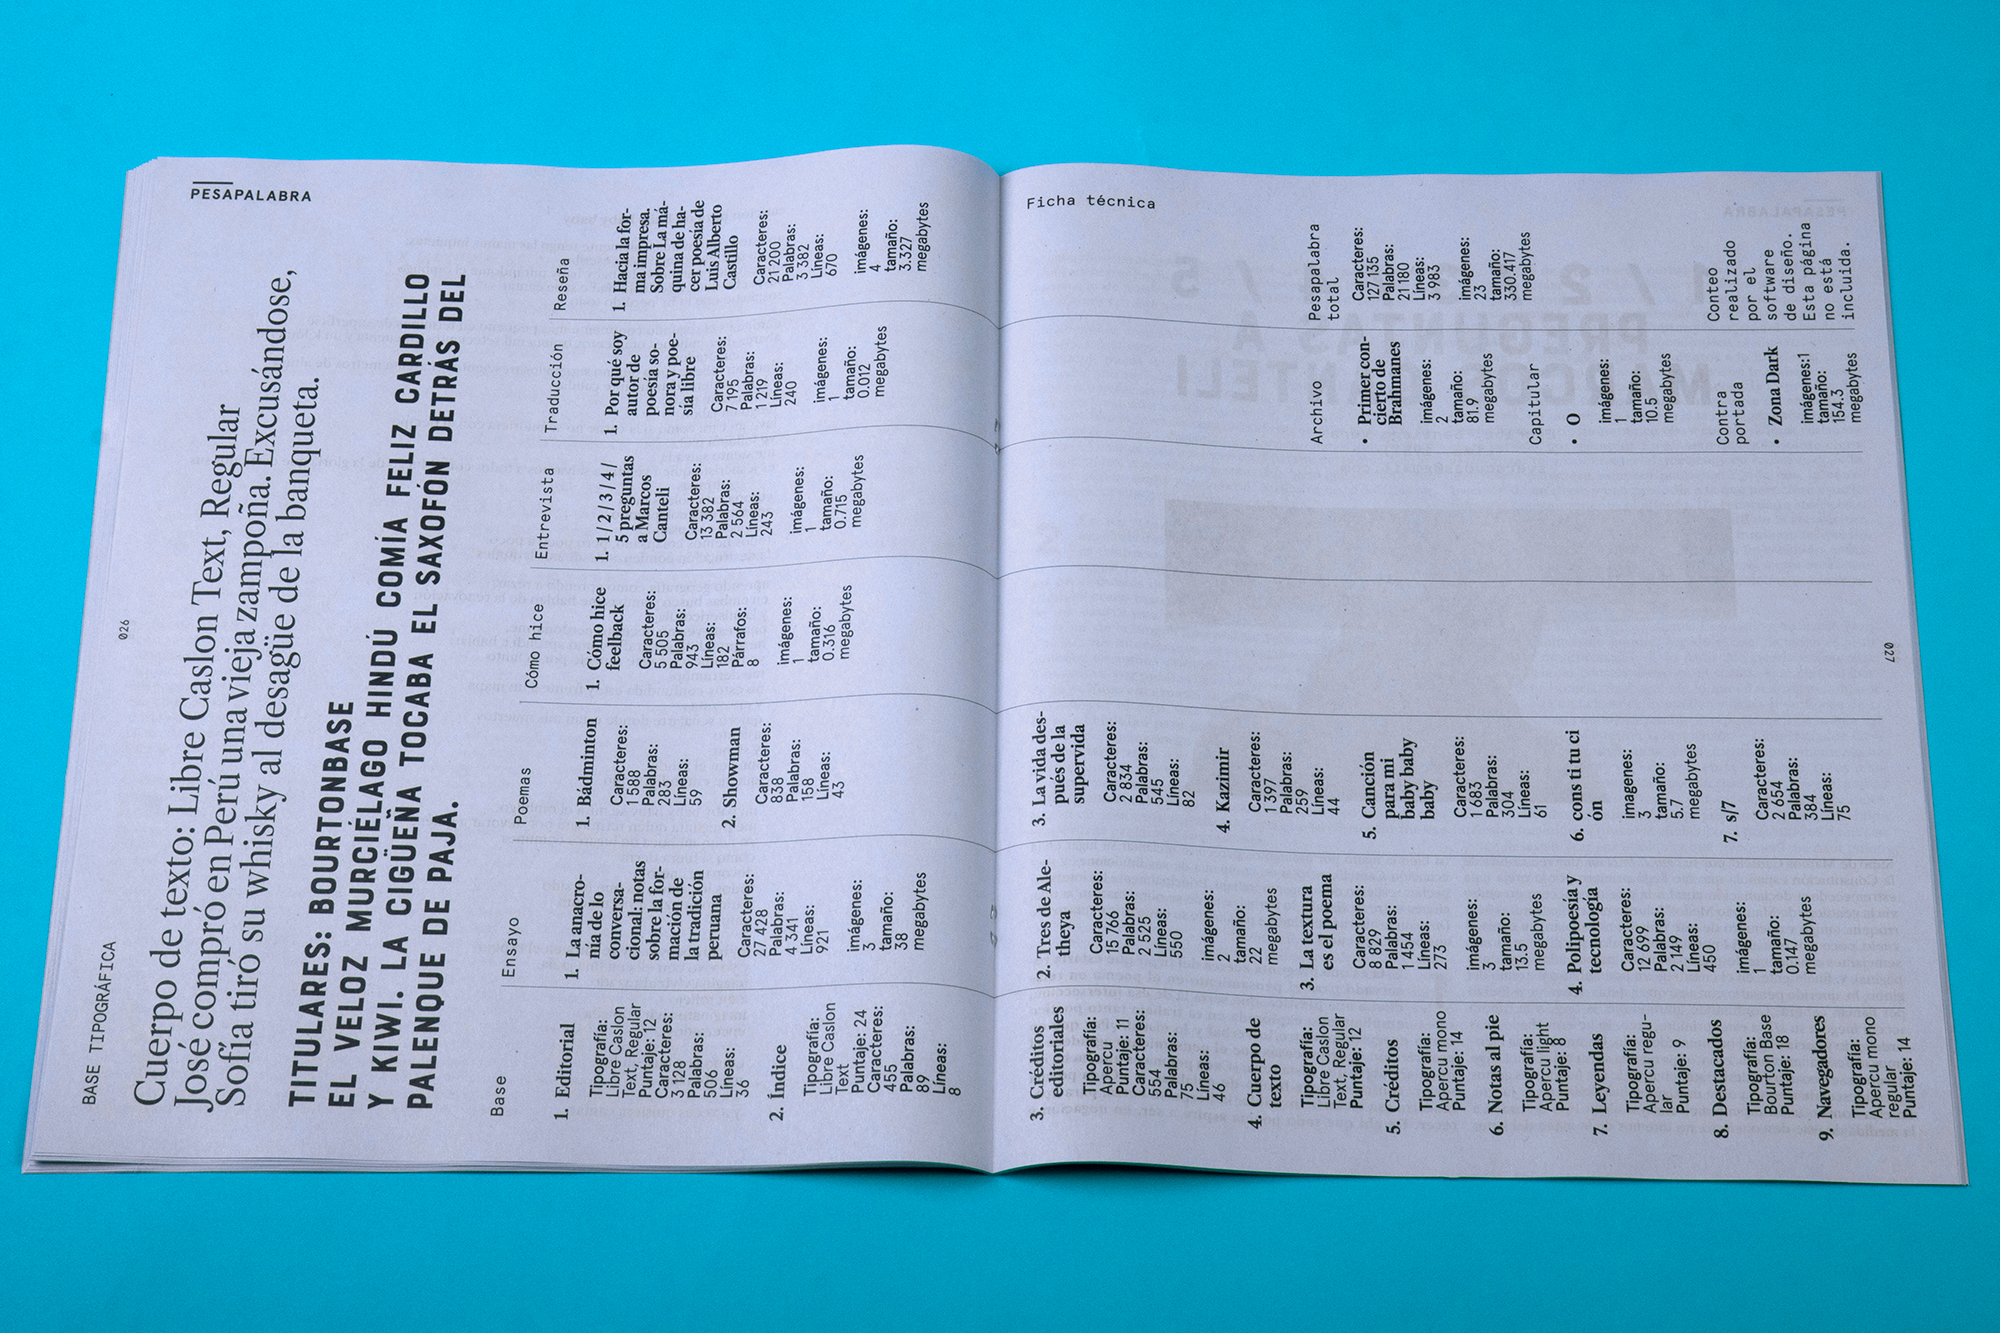 PESAPALABRA
Ficha técnica
026
027
BASE TIPOGRÁFICA
Cuerpo de texto: Libre Caslon Text, Regular
José compró en Perú una vieja zampoña. Excusándose,
Sofía tiró su whisky al desagüe de la banqueta.
TITULARES: BOURTONBASE
EL VELOZ MURCIÉLAGO HINDÚ COMÍA FELIZ CARDILLO
Y KIWI. LA CIGÜEÑA TOCABA EL SAXOFÓN DETRÁS DEL
PALENQUE DE PAJA.
Base
1. Editorial
Tipografía:
Libre Caslon
Text, Regular
Puntaje: 12
Caracteres:
3 128
Palabras:
506
Líneas:
36
2. Índice
Tipografía:
Libre Caslon
Text
Puntaje: 24
Caracteres:
455
Palabras:
89
Líneas:
8
3. Créditos
editoriales
Tipografía:
Apercu
Puntaje: 11
Caracteres:
554
Palabras:
75
Líneas:
46
4. Cuerpo de
texto
Tipografía:
Libre Caslon
Text, Regular
Puntaje: 12
5. Créditos
Tipografía:
Apercu mono
Puntaje: 14
6. Notas al pie
Tipografía:
Apercu light
Puntaje: 8
7. Leyendas
Tipografía:
Apercu regu-
lar
Puntaje: 9
8. Destacados
Tipografía:
Bourton Base
Puntaje: 18
9. Navegadores
Tipografía:
Apercu mono
regular
Puntaje: 14
Ensayo
1. La anacro-
nía de lo
conversa-
cional: notas
sobre la for-
mación de
la tradición
peruana
Caracteres:
27 428
Palabras:
4 341
Líneas:
921
imágenes:
3
tamaño:
38
megabytes
2. Tres de Ale-
theya
Caracteres:
15 766
Palabras:
2 525
Líneas:
550
imágenes:
2
tamaño:
22
megabytes
3. La textura
es el poema
Caracteres:
8 829
Palabras:
1 454
Líneas:
273
imágenes:
3
tamaño:
13.5
megabytes
4. Polipoesía y
tecnología
Caracteres:
12 699
Palabras:
2 149
Líneas:
450
imágenes:
1
tamaño:
0.147
megabytes
Poemas
1. Bádminton
Caracteres:
1 588
Palabras:
283
Líneas:
59
2. Showman
Caracteres:
838
Palabras:
158
Líneas:
43
3. La vida des-
pués de la
supervida
Caracteres:
2 834
Palabras:
545
Líneas:
82
4. Kazimir
Caracteres:
1 397
Palabras:
259
Líneas:
44
5. Canción
para mi
baby baby
baby
Caracteres:
1 683
Palabras:
304
Líneas:
61
6. cons ti tu ci
ón
imagenes:
3
tamaño:
5.7
megabytes
7. s/7
Caracteres:
2 654
Palabras:
384
Líneas:
75
Cómo hice
1. Cómo hice
feelback
Caracteres:
5 505
Palabras:
943
Líneas:
182
Párrafos:
8
imágenes:
1
tamaño:
0.316
megabytes
Entrevista
1. 1 / 2 / 3 / 4 /
5 preguntas
a Marcos
Canteli
Caracteres:
13 382
Palabras:
2 564
Líneas:
243
imágenes:
1
tamaño:
0.715
megabytes
Traducción
1. Por qué soy
autor de
poesía so-
nora y poe-
sía libre
Caracteres:
7 195
Palabras:
1 219
Líneas:
240
imágenes:
1
tamaño:
0.012
megabytes
Archivo
• Primer con-
cierto de
Brahmanes
imágenes:
2
tamaño:
81.9
megabytes
Capitular
• O
imágenes:
1
tamaño:
10.5
megabytes
Contra
portada
• Zona Dark
imágenes:1
tamaño:
154.3
megabytes
Reseña
1. Hacia la for-
ma impresa.
Sobre La má-
quina de ha-
cer poesía de
Luis Alberto
Castillo
Caracteres:
21 200
Palabras:
3 382
Líneas:
670
imágenes:
4
tamaño:
3.327
megabytes
Pesapalabra
total
Caracteres:
127 135
Palabras:
21 180
Líneas:
3 983
imágenes:
23
tamaño:
330.417
megabytes
Conteo
realizado
por el
software
de diseño.
Esta página
no está
incluida.